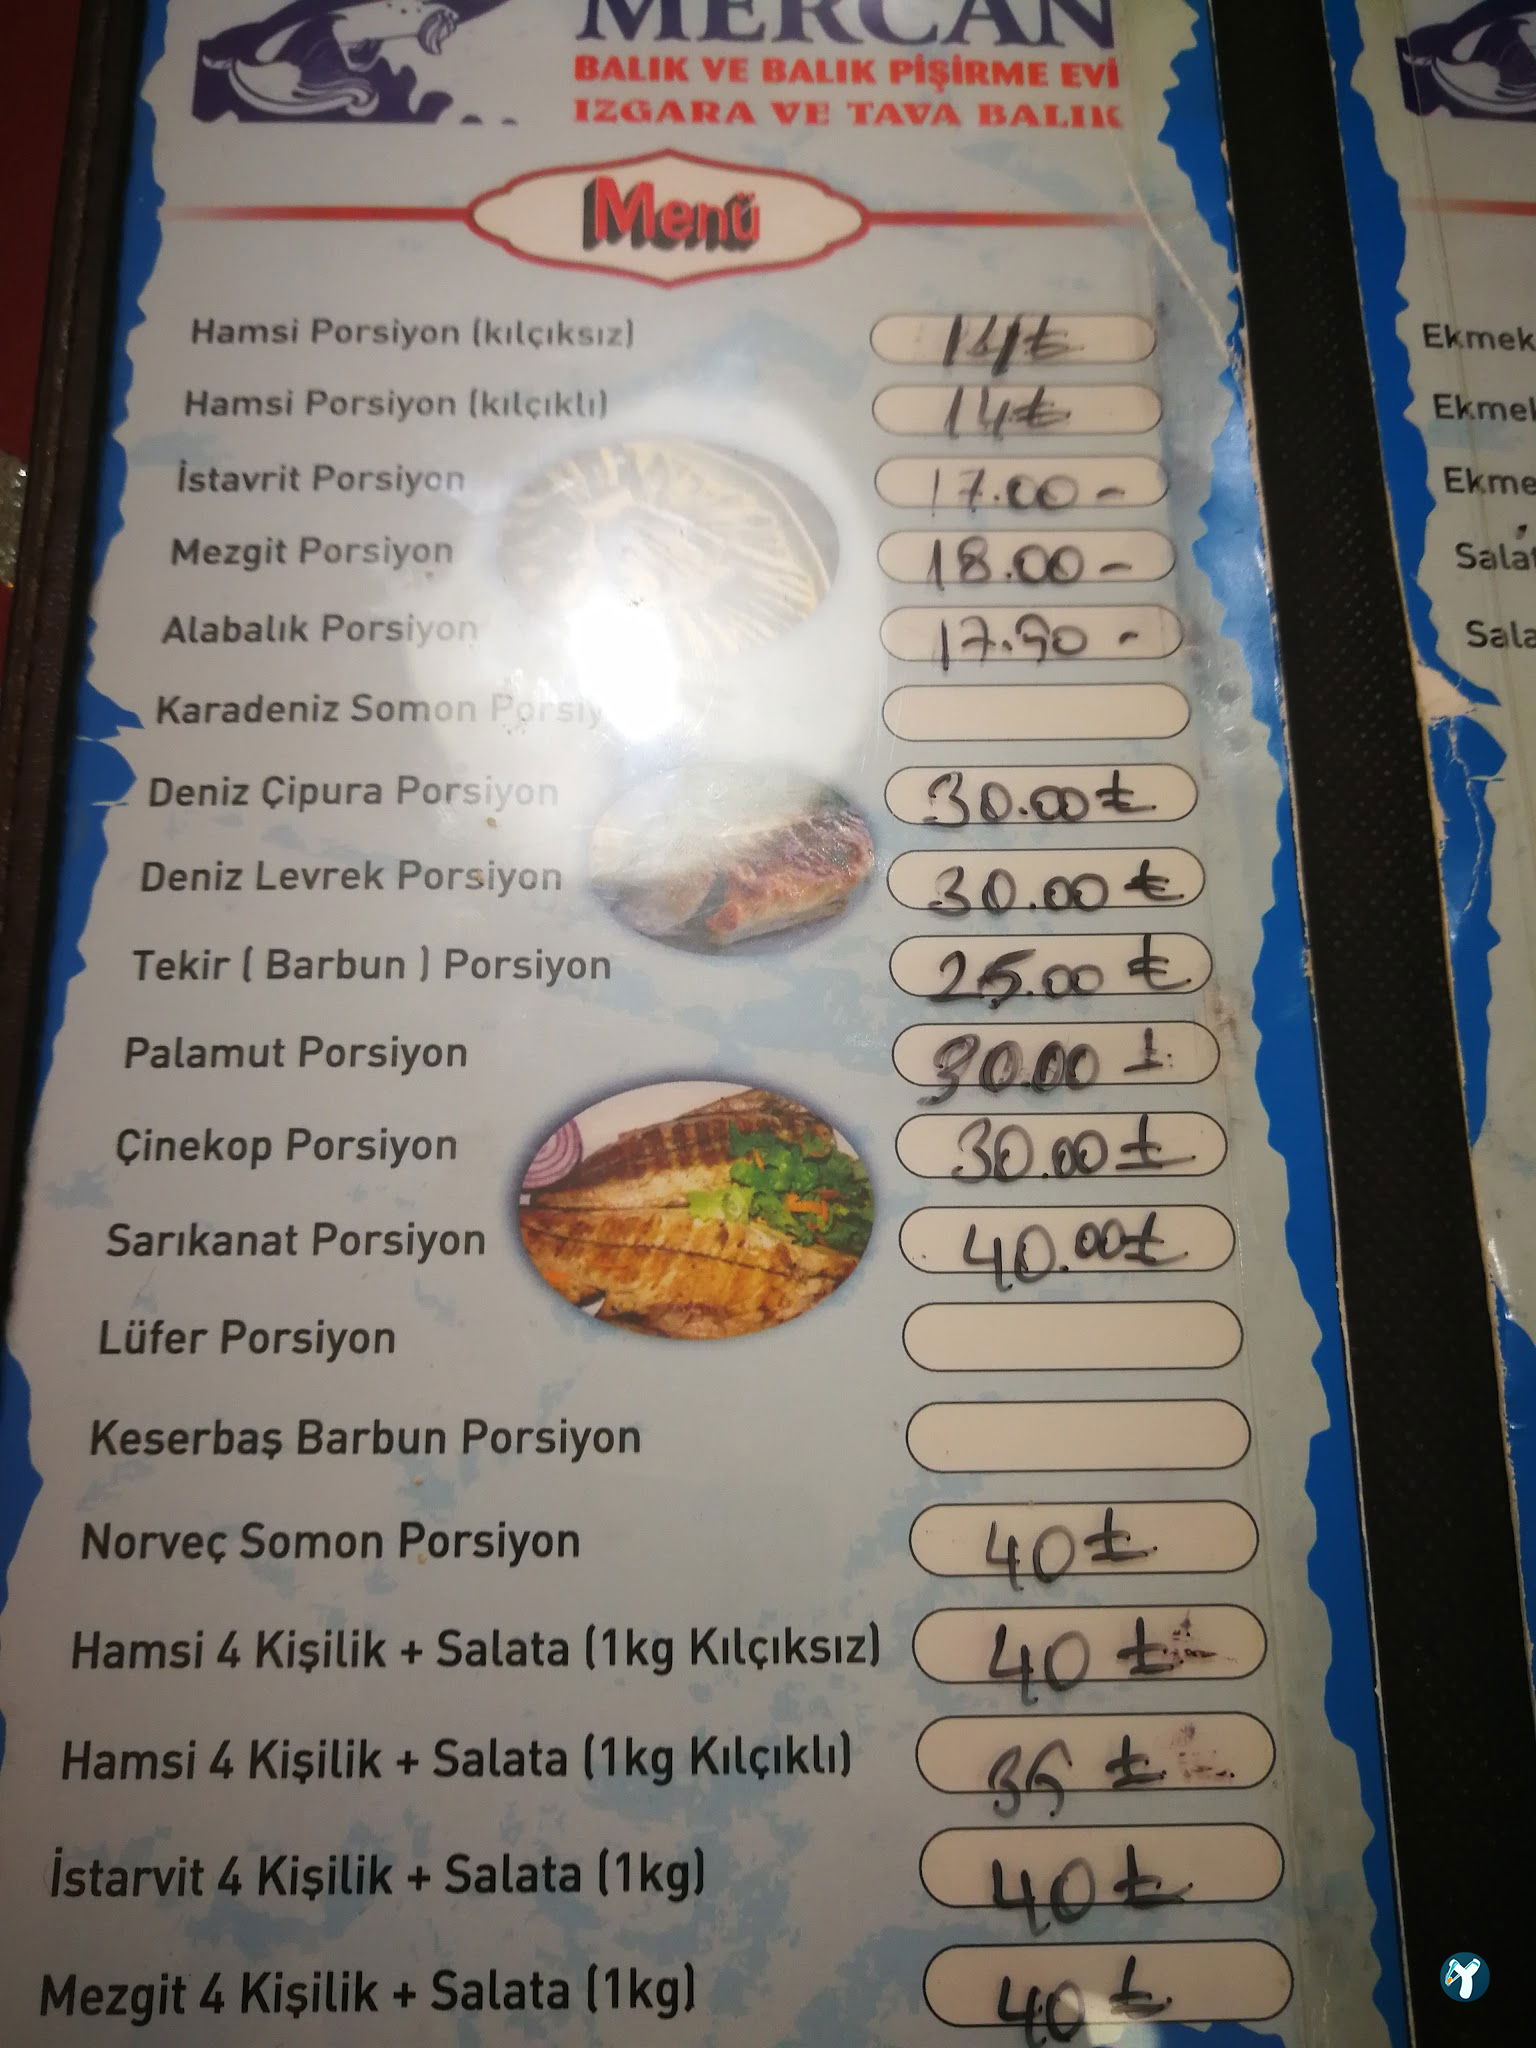 MERCAN
BALIK VE BALIK PİŞİRME EVİ
IZGARA VE TAVA BALIK
Menü
Hamsi Porsiyon (kılçıksız) 14₺
Hamsi Porsiyon (kılçıklı) 14₺
İstavrit Porsiyon 17.00-
Mezgit Porsiyon 18.00-
Alabalık Porsiyon 17.90-
Karadeniz Somon
Deniz Çipura Porsiyon 30.00₺
Deniz Levrek Porsiyon 30.00₺
Tekir ( Barbun ) Porsiyon 25.00₺
Palamut Porsiyon 30.00₺
Çinekop Porsiyon 30.00₺
Sarıkanat Porsiyon 40.00₺
Lüfer Porsiyon
Keserbaş Barbun Porsiyon
Norveç Somon Porsiyon 40₺
Hamsi 4 Kişilik + Salata (1kg Kılçıksız) 40₺
Hamsi 4 Kişilik + Salata (1kg Kılçıklı) 35₺
İstarvit 4 Kişilik + Salata (1kg) 40₺
Mezgit 4 Kişilik + Salata (1kg) 40₺
Ekmek